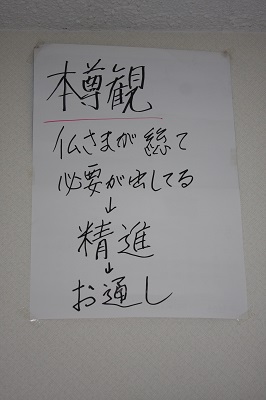 本尊観
仏さまが総て
必要が出してる
↓
精進
↓
お通し